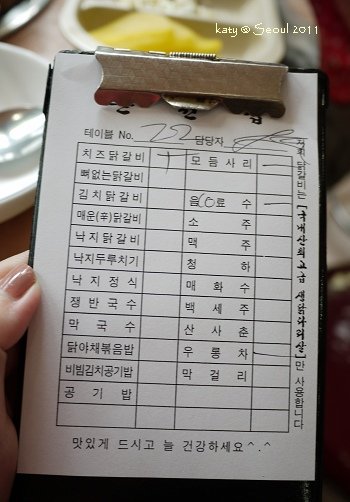 katy @ Seoul 2011
테이블 No. 22 담당자
치즈닭갈비 모듬사리
뼈없는닭갈비
김치닭갈비 음료수
매운(辛)닭갈비 소주
낙지닭갈비 맥주
낙지두루치기 청하
낙지정식 매화수
쟁반국수 백세주
막국수 산사춘
닭야채볶음밥 우롱차
비빔김치공기밥 막걸리
공기밥
맛있게 드시고 늘 건강하세요^.^
닭갈비는 [국내산의고급 생닭다리살]만 사용합니다